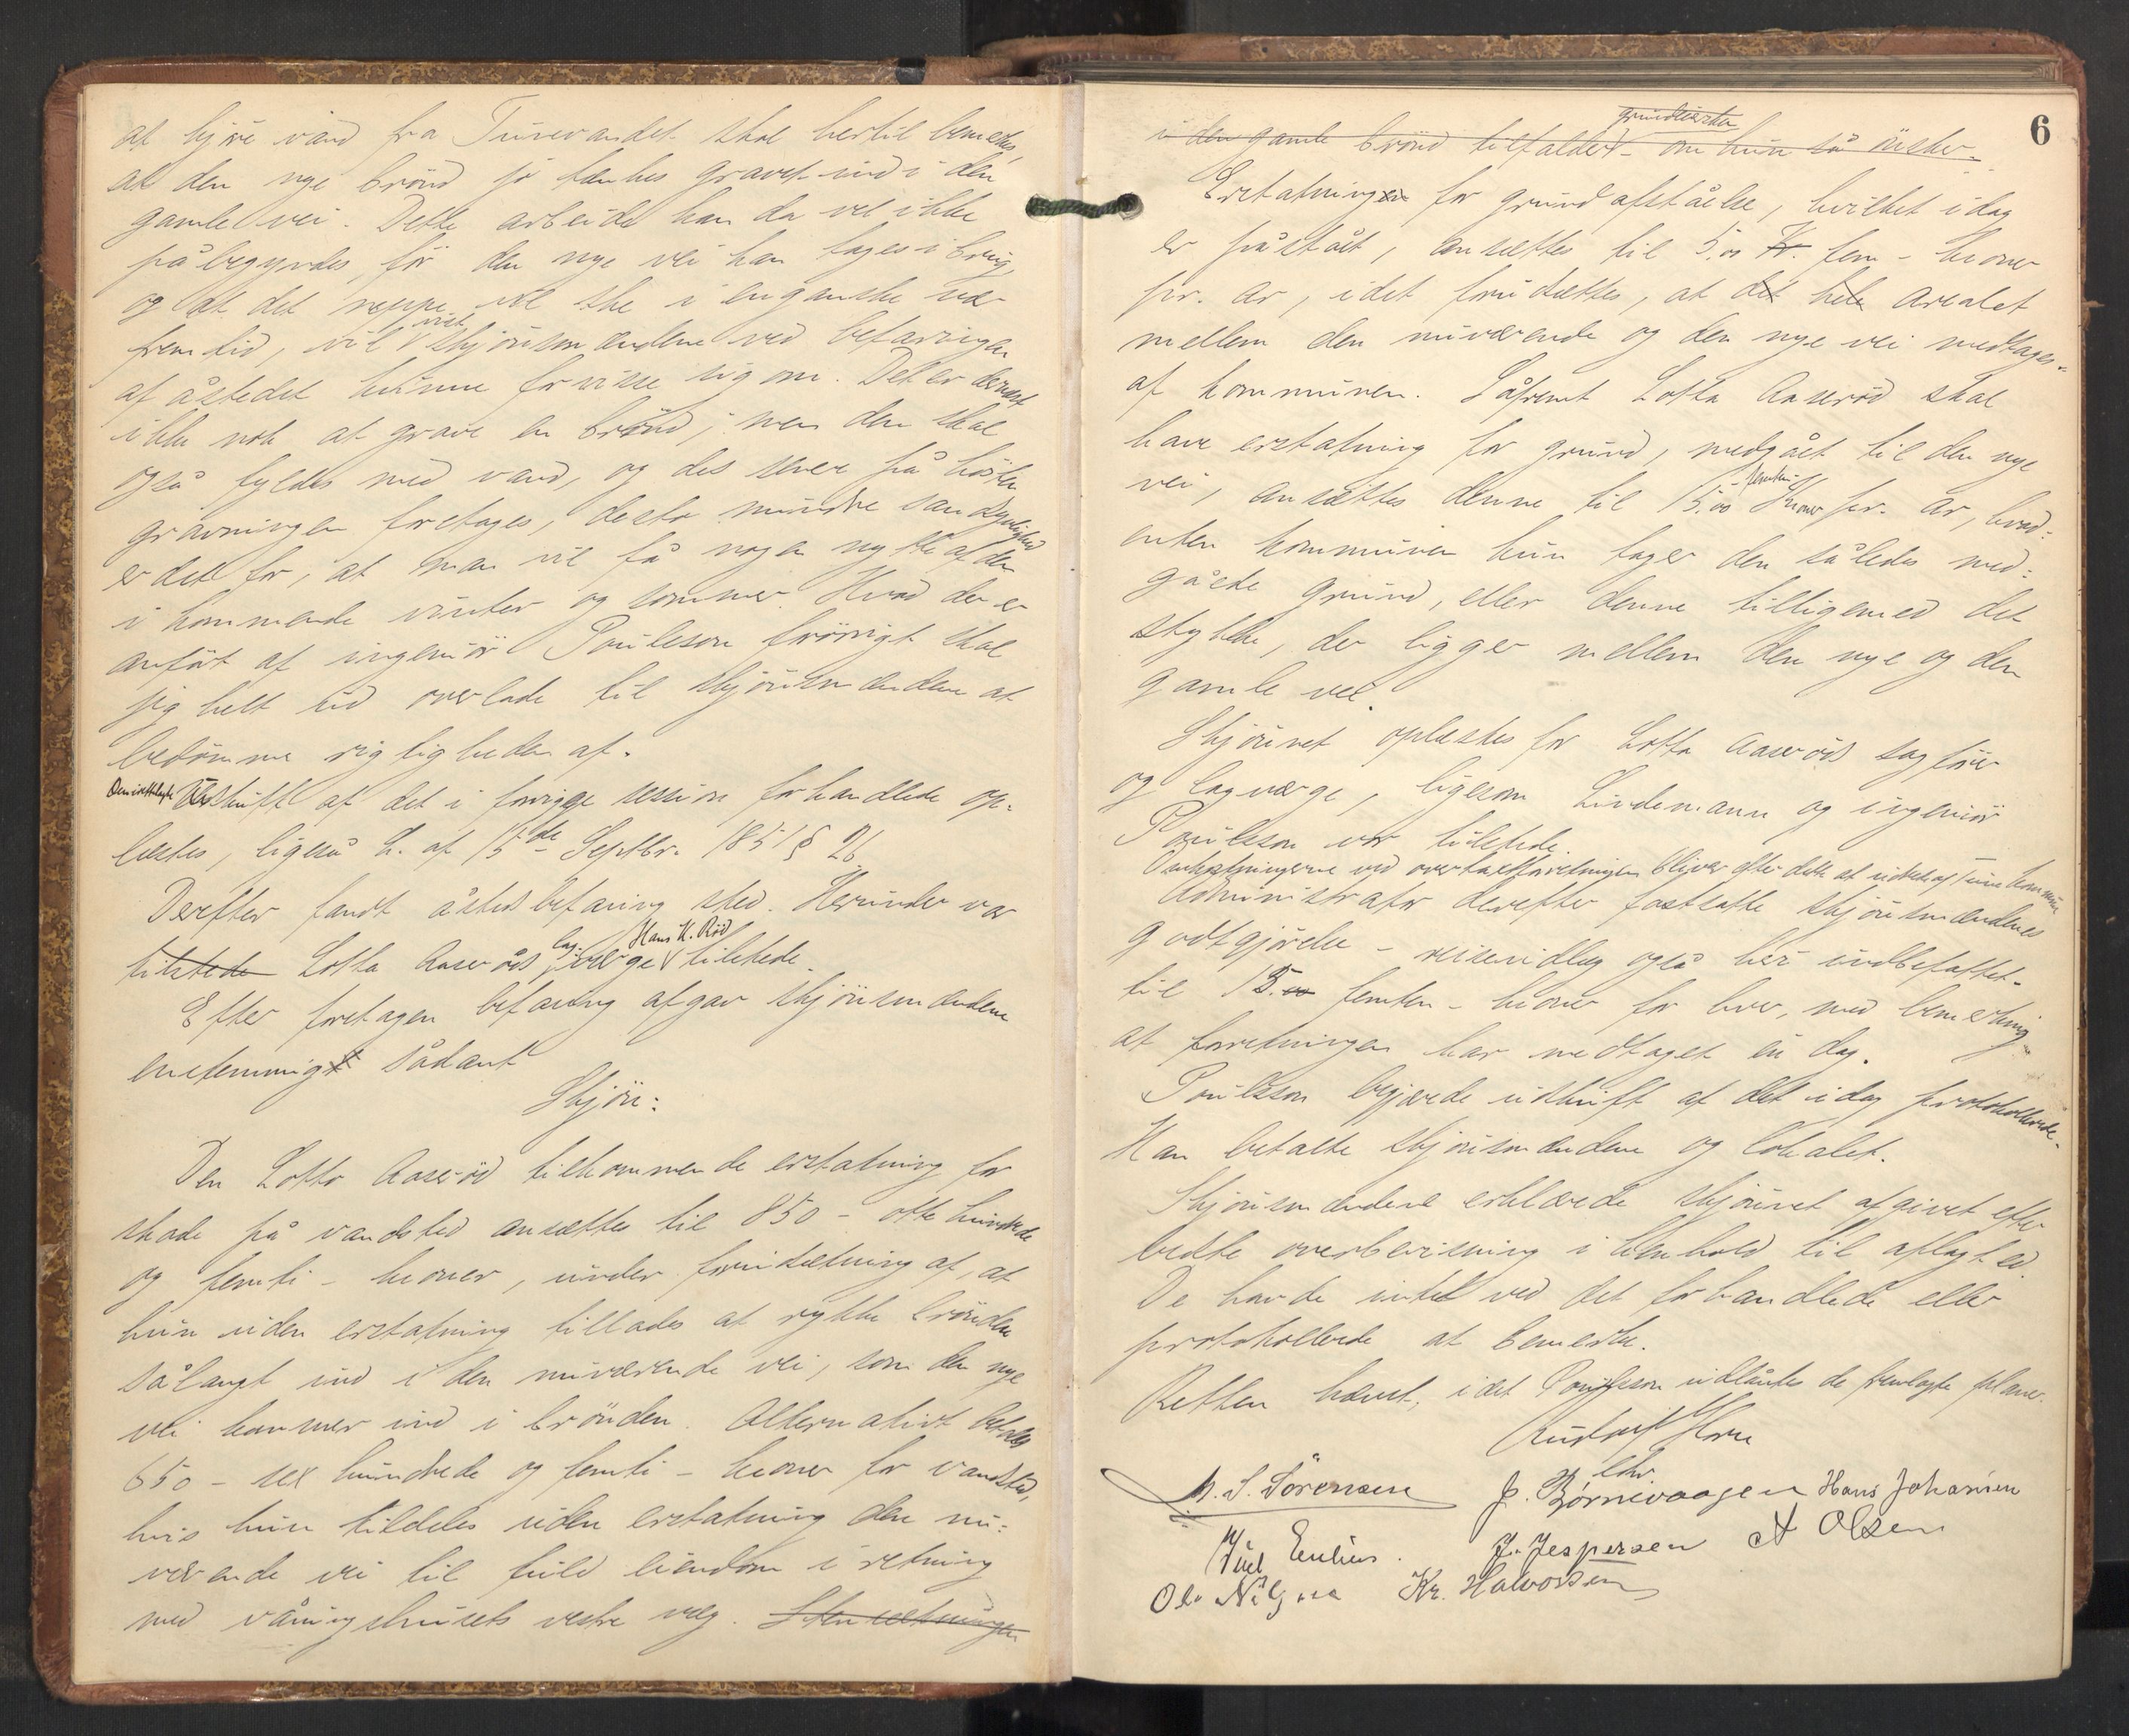 at kjøre vand fra Tunevandet skal hertil bemerkes,
at den nye brønd jo tænkes gravet ind i den
gamle vei. Dette arbeide kan da vel ikke
påbegyndes, før den nye vei kan tages i brug,
og at det neppe vil ske i en ganske nær
fremtid, vil vist skjønsmændene ved befaringen
af åstedet kunne forvisse sig om. Det er dernæst
ikke nok at grave en brønd; men den skal
også fyldes med vand, og des senere på høsten
gravningen foretages, desto mindre sandsynlighed
er det for, at man vil få nogen nytte af den
i kommende vinter og sommer. Hvad der er
anført af ingeniør Poulsson forøvrigt skal
jeg helt ud overlade til skjønsmændene at
bedømme rigtigheden af.
Den indlagte udskrift af det i forrige session forhandlede op-
læstes, ligeså L. af 15de Septbr. 1851 § 26
Derefter fandt åstedsbefaring sted. Herunder var
tilstede Lotta Aaserøds lag-værge Hans H. Rød tilstede.
Efter foretagen befaring afgav skjønsmændene
enstemmigt sådant
Skjøn:
Den Lotta Aaserød tilkommende erstatning for
skade på vandsted ansættes til 850 - otte hundrede
og femti - kroner, under forudsætning af, at
hun uden erstatning tillades at rykke brønden
sålangt ind i den nuværende vei, som den nye
vei kommer ind i brønden. Alternativt betales
650 - sex hundrede og femti - kroner for vandsted,
hvis hun tildeles uden erstatning den nu-
værende vei til fuld eiendom i retning
med våningshusets vestre væg. Stensætningen
6
grundeiersken
i den gamle brønd tilfalder - om hun så ønsker.
Erstatningen for grundafståelse, hvilket idag
er påstået, ansættes til 5.00 Kr. fem - kroner
pr. ar, idet forudsættes, at det hele arealet
mellem den nuværende og den nye vei medtages
af kommunen. Såfremt Lotta Aaserød skal
have erstatning for grund, medgået til den nye
vei, ansættes denne til 15.00 - femten - Kroner pr. ar, hvad-
enten kommunen kun tager den således med-
gåede grund, eller denne tilligemed det
stykke, der ligger mellem den nye og den
gamle vei.
Skjønnet oplæstes for Lotta Aaserøds sagfører
og lagværge, ligesom Lindemann og ingeniør
Poulsson var tilstede.
Omkostningerne ved overtaxtforretningen bliver efter dette at udrede af Tune kommune
Administrator derefter fastsatte skjønsmændenes
godtgjørelse - reiseudlæg også heri indbefattet -
til 15.00 femten - kroner for hver, med bemerkning
at forretningen har medtaget en dag.
Poulsson begjærede udskrift af det idag protokollerede.
Han betalte skjønsmændene og lokalet.
Skjønsmændene erklærede skjønnet afgivet efter
bedste overbevisning i henhold til aflagt ed.
De havde intet ved det forhandlede eller
protokollerede at bemerke.
Retten hævet, idet Poulsson udlåntes de fremlagte planer.
Rudolf Horn
cst.
M. S. Sörensen J. Bjørnevaagen Hans Johansen
J. Jespersen A Olsen
Ole Kr. Halvorsen